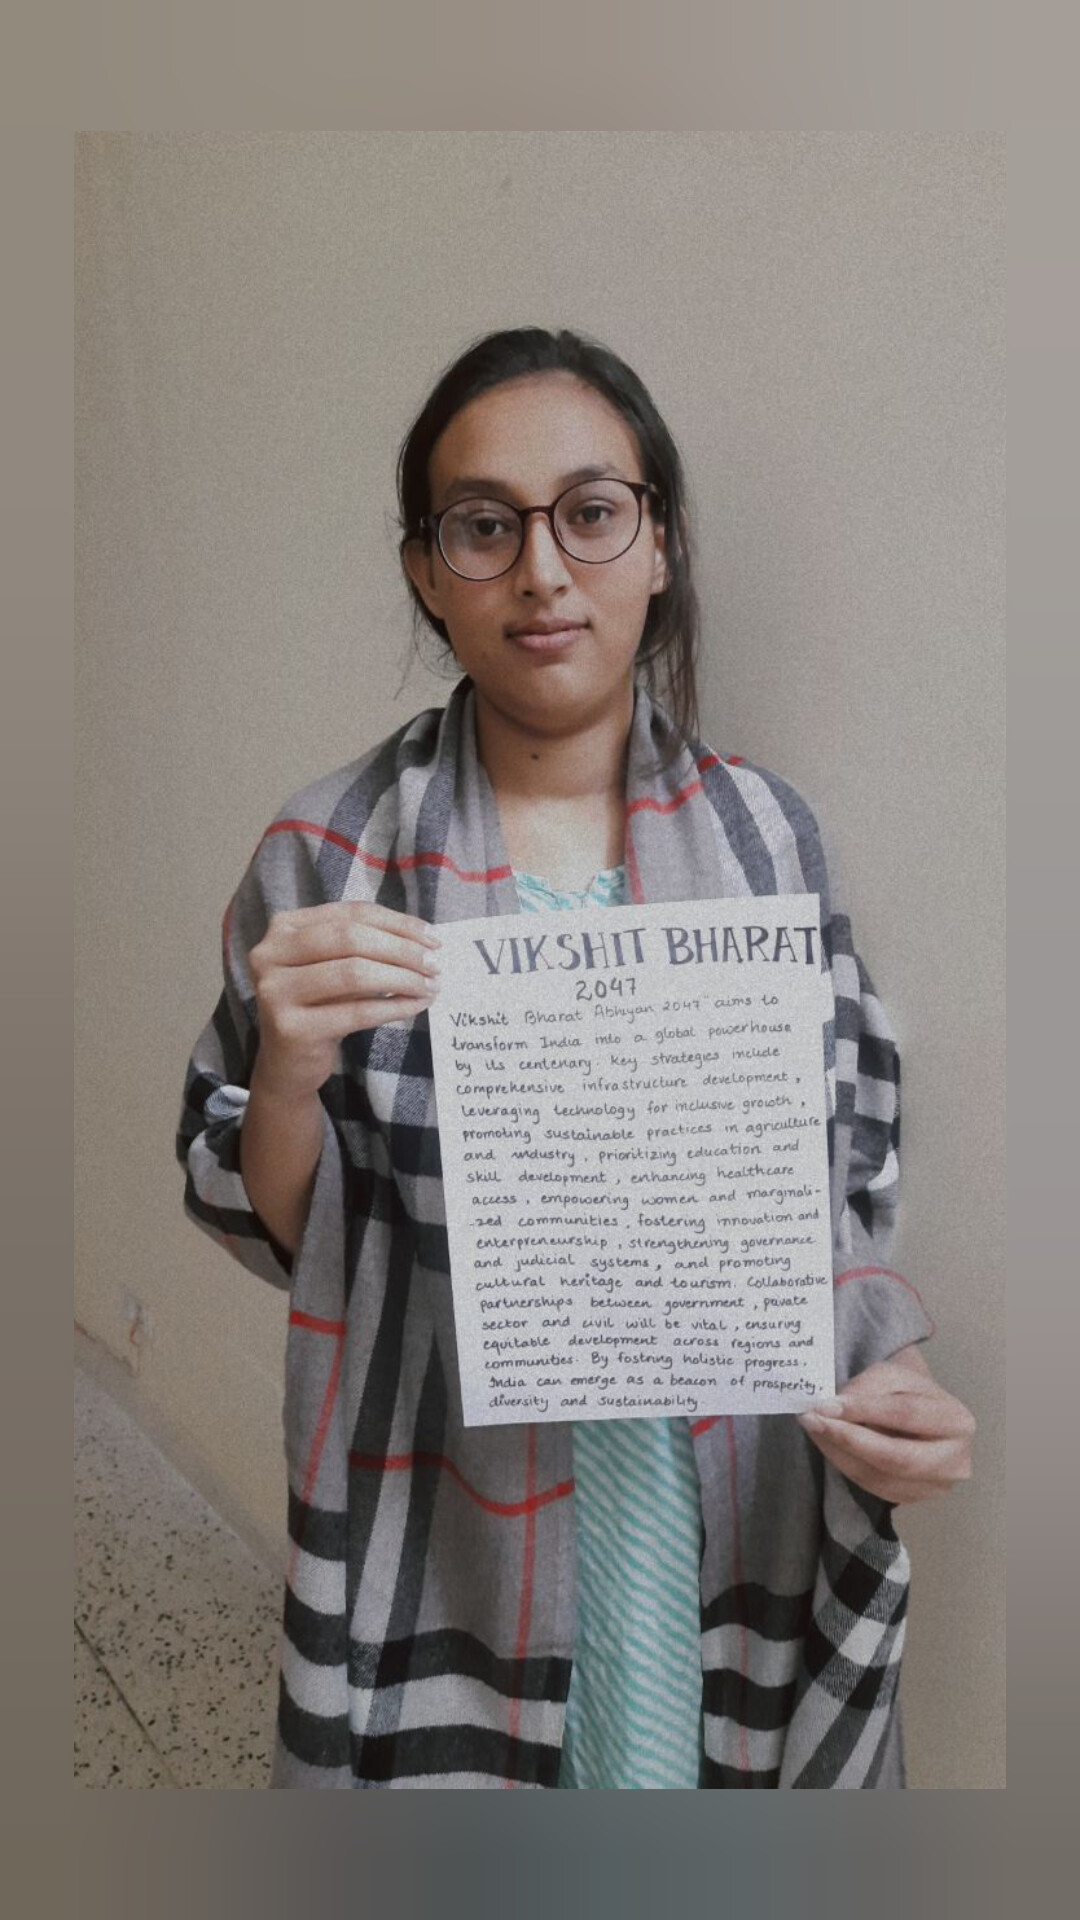 VIKSHIT BHARAT
2047
Vikshit Bharat Abhiyan 2047" aims to
transform India into a global powerhouse
by its centenary. key strategies include
comprehensive infrastructure development,
leveraging technology for inclusive growth,
promoting sustainable practices in agriculture
and industry, prioritizing education and
skill development, enhancing healthcare
access, empowering women and marginali-
-zed communities, fostering innovation and
enterpreneurship, strengthening governance
and judicial systems, and promoting
cultural heritage and tourism. Collaborative
partnerships between government, private
sector and civil will be vital, ensuring
equitable development across regions and
communities. By fostring holistic progress,
India can emerge as a beacon of prosperity,
diversity and sustainability.